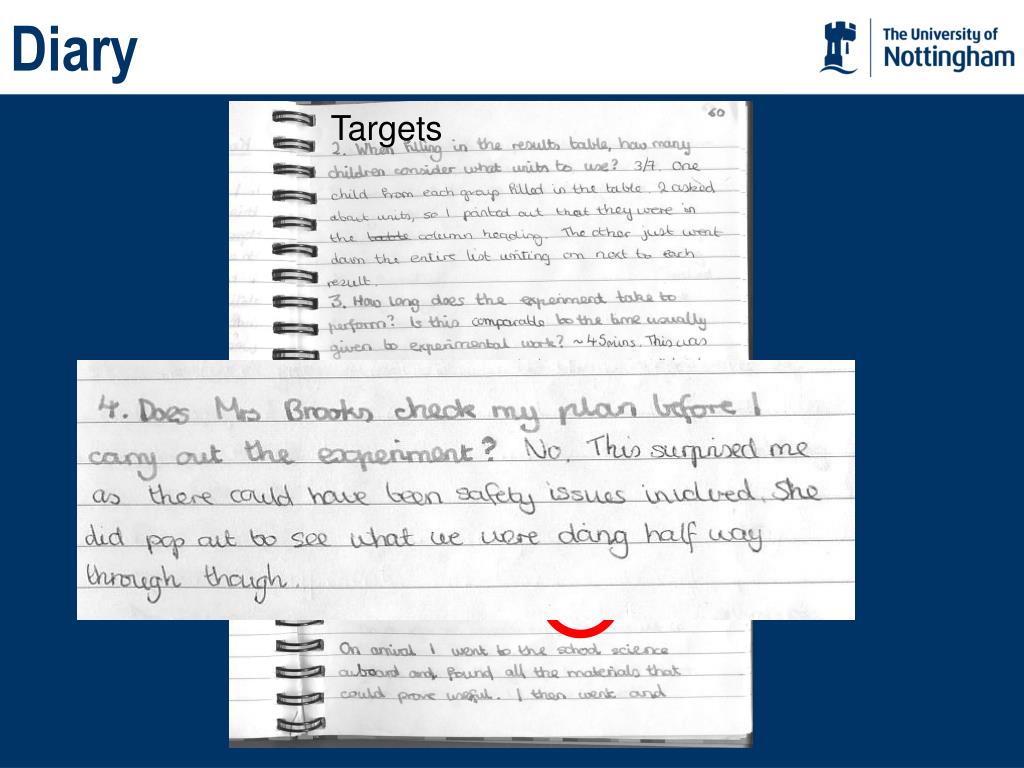 Diary
The University of
Nottingham
60
Targets
2. When filling in the results table, how many
children consider what units to use? 3/7. One
child from each group filled in the table. 2 asked
about units, so I pointed out that they were in
the table column heading. The other just went
down the entire list writing cm next to each
result.
3. How long does the experiment take to
perform? Is this comparable to the time usually
given to experimental work? ~45mins. This was
4. Does Mrs Brooks check my plan before I
carry out the experiment? No. This surprised me
as there could have been safety issues involved. She
did pop out to see what we were doing half way
through though.
On arrival I went to the school science
cuboard and found all the materials that
could prove useful. I then went and